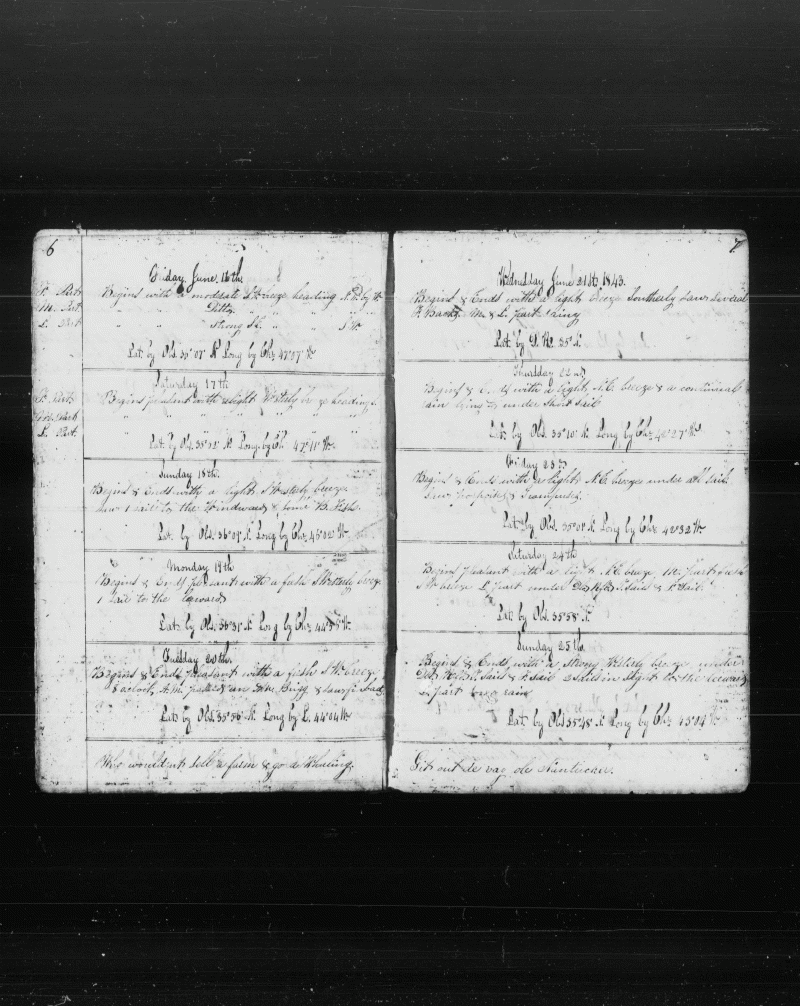 6
Friday June 16th
F. Part Begins with a moderate S.W. breeze heading N.W. by W
M. Part " " Ditto " " "
L. Part " " Strong " " S W
Lat by Obs. 35° 07' N Long by Chr. 47°07' W
Saturday 17th
F. Part Begins pleasant with a light Westerly breeze heading S.
Mid. Part " " " " "
L. Part. " " " " "
Lat. by Obs. 35°52' N. Long. by Ch. 47°11' W.
Sunday 18th.
Begins & Ends with a light S Westerly breeze
saw 1 sail to the Windward & some B. Fish.
Lat. by Obs. 36°09' N Long by Chr. 45°02' W
Monday 19th
Begins & Ends pleasant with a fresh S Westerly breeze
1 sail to the leeward
Lat by Obs. 36°31' N Long by Chr. W
Tuesday 20th.
Begins & Ends pleasant with a fresh S W. breeze
o'clock, A.M.
Lat by Obs. 35°56' N. Long by L. 44°04 W
Who wouldn't sell a farm & go a Whaling.
7
Wednesday June 21st, 1843.
Begins & Ends with a light breeze Southerly saw several
F. Backs. M. & L. Part
Lat by D. R. 35°
Thursday 22nd
Begins & Ends with a light N.E. breeze & a continual
rain under short sail
Lat by Obs. 35°10' N. Long by Chr. 42°27' W
Friday 23d
Begins & Ends with a light N.E. breeze under all sail.
Saw porpoises &
Lat by Obs. 35°01' N Long by Chr. 42°32 W
Saturday 24th
Begins pleasant with a light N.E. breeze M. Part fresh
S W breeze L Part under
Lat by Obs. 35°58' N
Sunday 25th
Begins & Ends with a strong Westerly breeze under
Sail in sight to the leeward
Part rain
Lat by Obs 35°48' N Long by Chr. 43°04' W
Git out de way ole Nantucker.